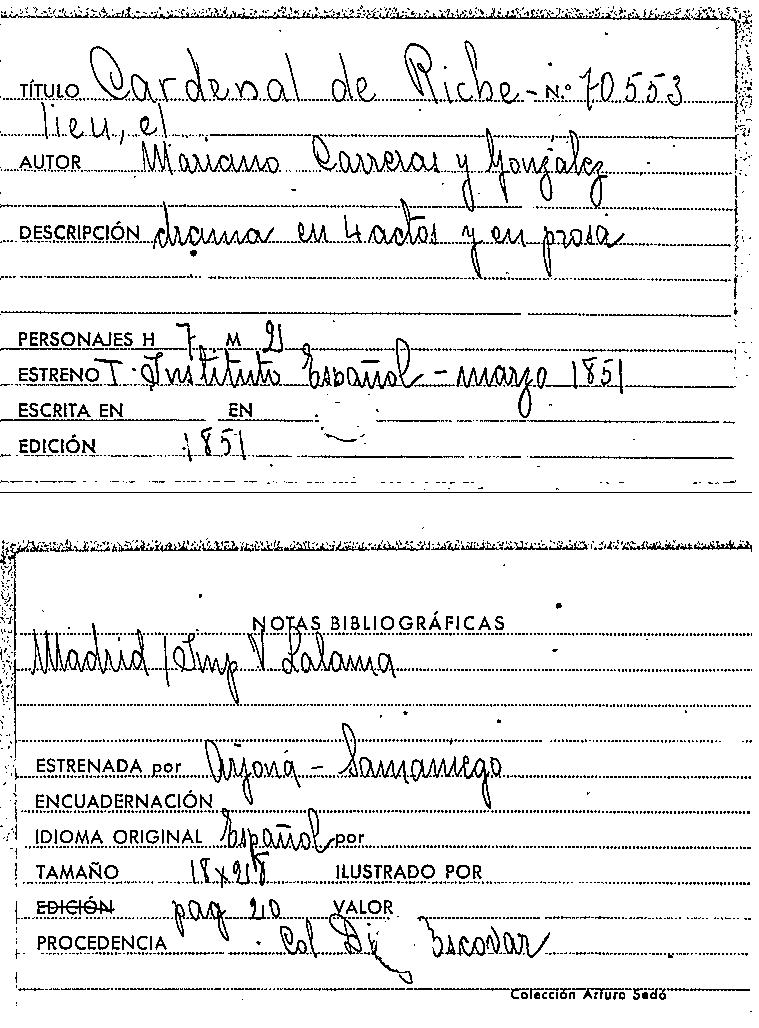 TÍTULO Cardenal de Riche- N.º 70553
lieu, el
AUTOR Mariano Carreras y González
DESCRIPCIÓN drama en 4 actos y en prosa
PERSONAJES H 7 M 2
ESTRENO T. Instituto Español - marzo 1851
ESCRITA EN EN
EDICIÓN 1851
NOTAS BIBLIOGRÁFICAS
Madrid / Imp V Lalama
ESTRENADA por Arjona - Samaniego
ENCUADERNACIÓN
IDIOMA ORIGINAL Español por
TAMAÑO ILUSTRADO POR
EDICIÓN pag 20 VALOR
PROCEDENCIA Col Escovar
Colección Arturo Sedó